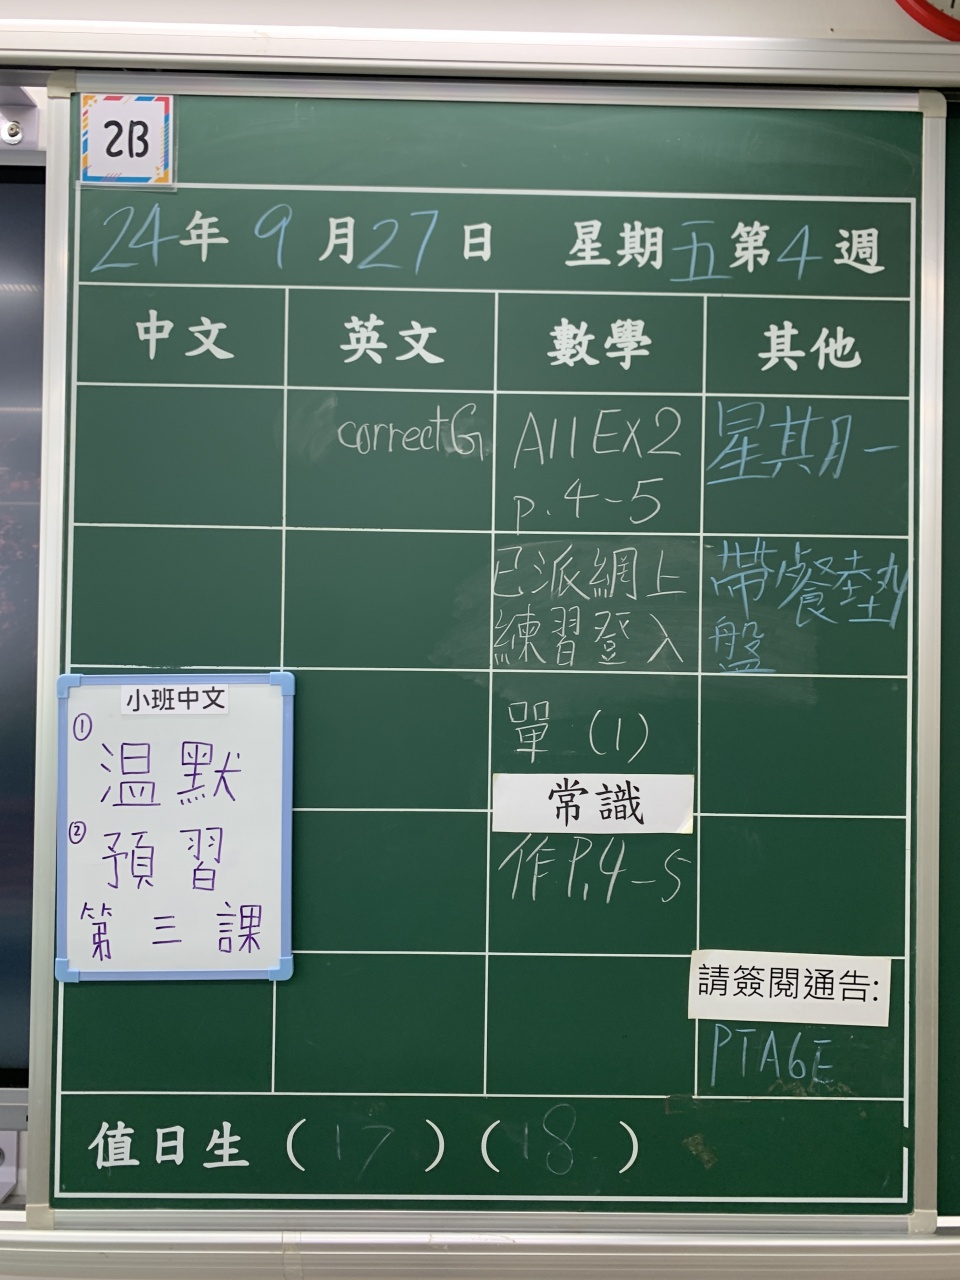 2B
24年9月27日 星期五第4週
中文 英文 數學 其他
correctG
A11 Ex2
p.4-5
已派網上
練習登入
單(1)
常識
作P.4-5
星其月一
帶餐墊
盤
請簽閱通告:
PTA6E
小班中文
① 温默
② 預習
第三課
值日生(17)(18)